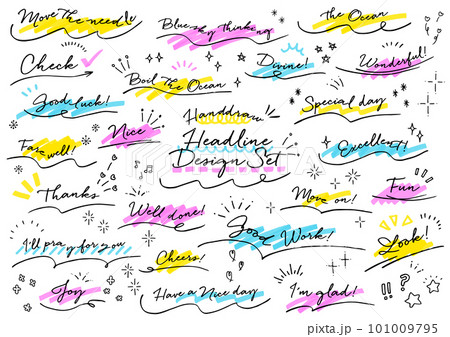 Move The needle
Blue Sky Thinking
The Ocean
Check
Boil The Ocean
Divine!
Wonderful!
Good luck!
Nice
Handdrawn
Headline
Design Set
Special day
Farewell!
Excellent!
Thanks
Well done!
Move on!
Fun
I'll pray for you
Cheers!
Good Work!
Look!
Joy
Have a Nice day
I'm glad!
!!
?
pixta
pixta.jp - 101009795